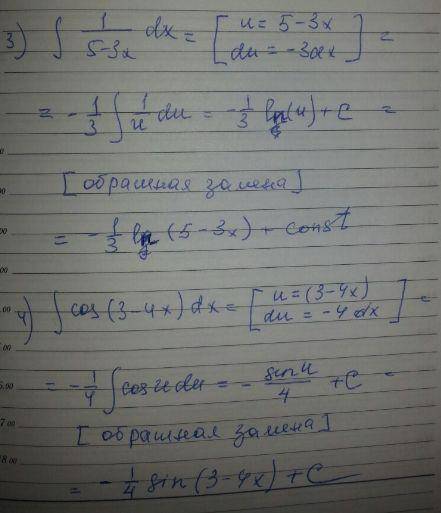 3) ∫ 1/(5-3x) dx = [ u = 5-3x
du = -3dx ] =
= -1/3 ∫ 1/u du = -1/3 ln(u) + C =
[обратная замена]
= -1/3 ln (5-3x) + const
4) ∫ cos (3-4x) dx = [ u = (3-4x)
du = -4 dx ] =
= -1/4 ∫ cos u du = - sin u/4 + C =
[обратная замена]
= -1/4 sin (3-4x) + C